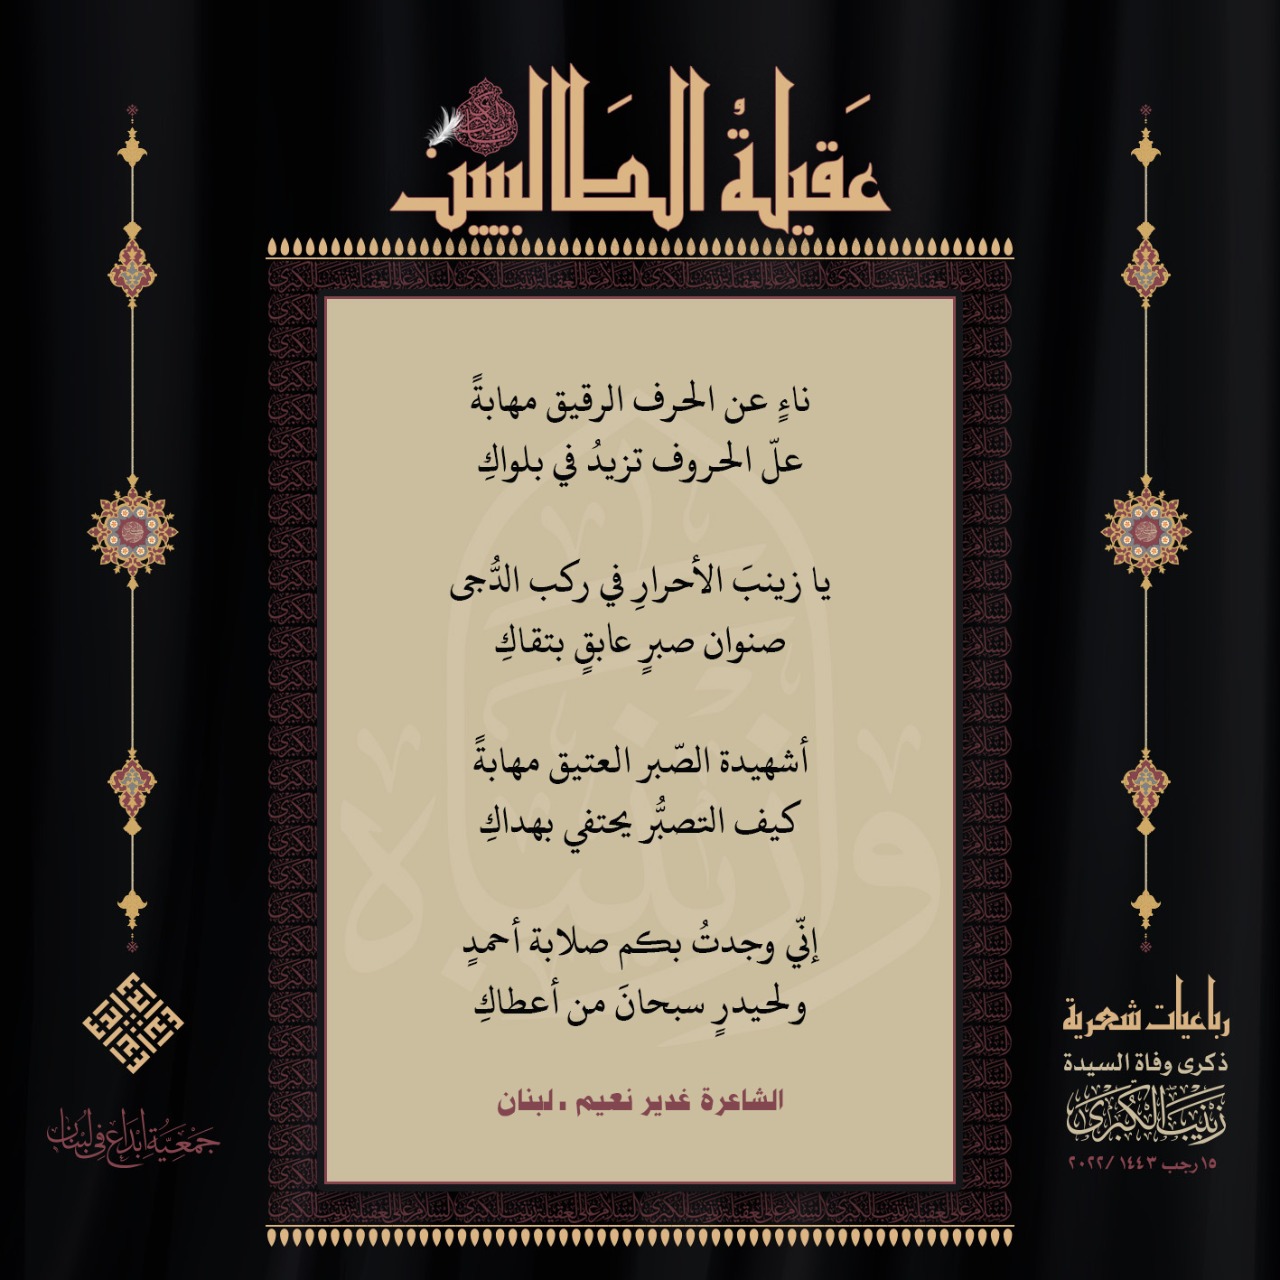 عَقيلةُ الطَالبيين
ناءٍ عن الحرف الرقيق مهابةً
علّ الحروف تزيدُ في بلواكِ
يا زينبَ الأحرارِ في ركب الدُّجى
صنوان صبرٍ عابقٍ بتقاكِ
أشهيدة الصّبر العتيق مهابةً
كيف التصبُّر يحتفي بهداكِ
إنّي وجدتُ بكم صلابة أحمدٍ
ولحيدرٍ سبحانَ من أعطاكِ
الشاعرة غدير نعيم . لبنان
رباعيات شعرية
ذكرى وفاة السيدة
زَيْنَبَ الْكُبْرَىٰ
١٥ رجب ١٤٤٣ /٢٠٢٢
جَمْعِيَّةُ إبْدَاع في لُبْنَان
وا زينباه